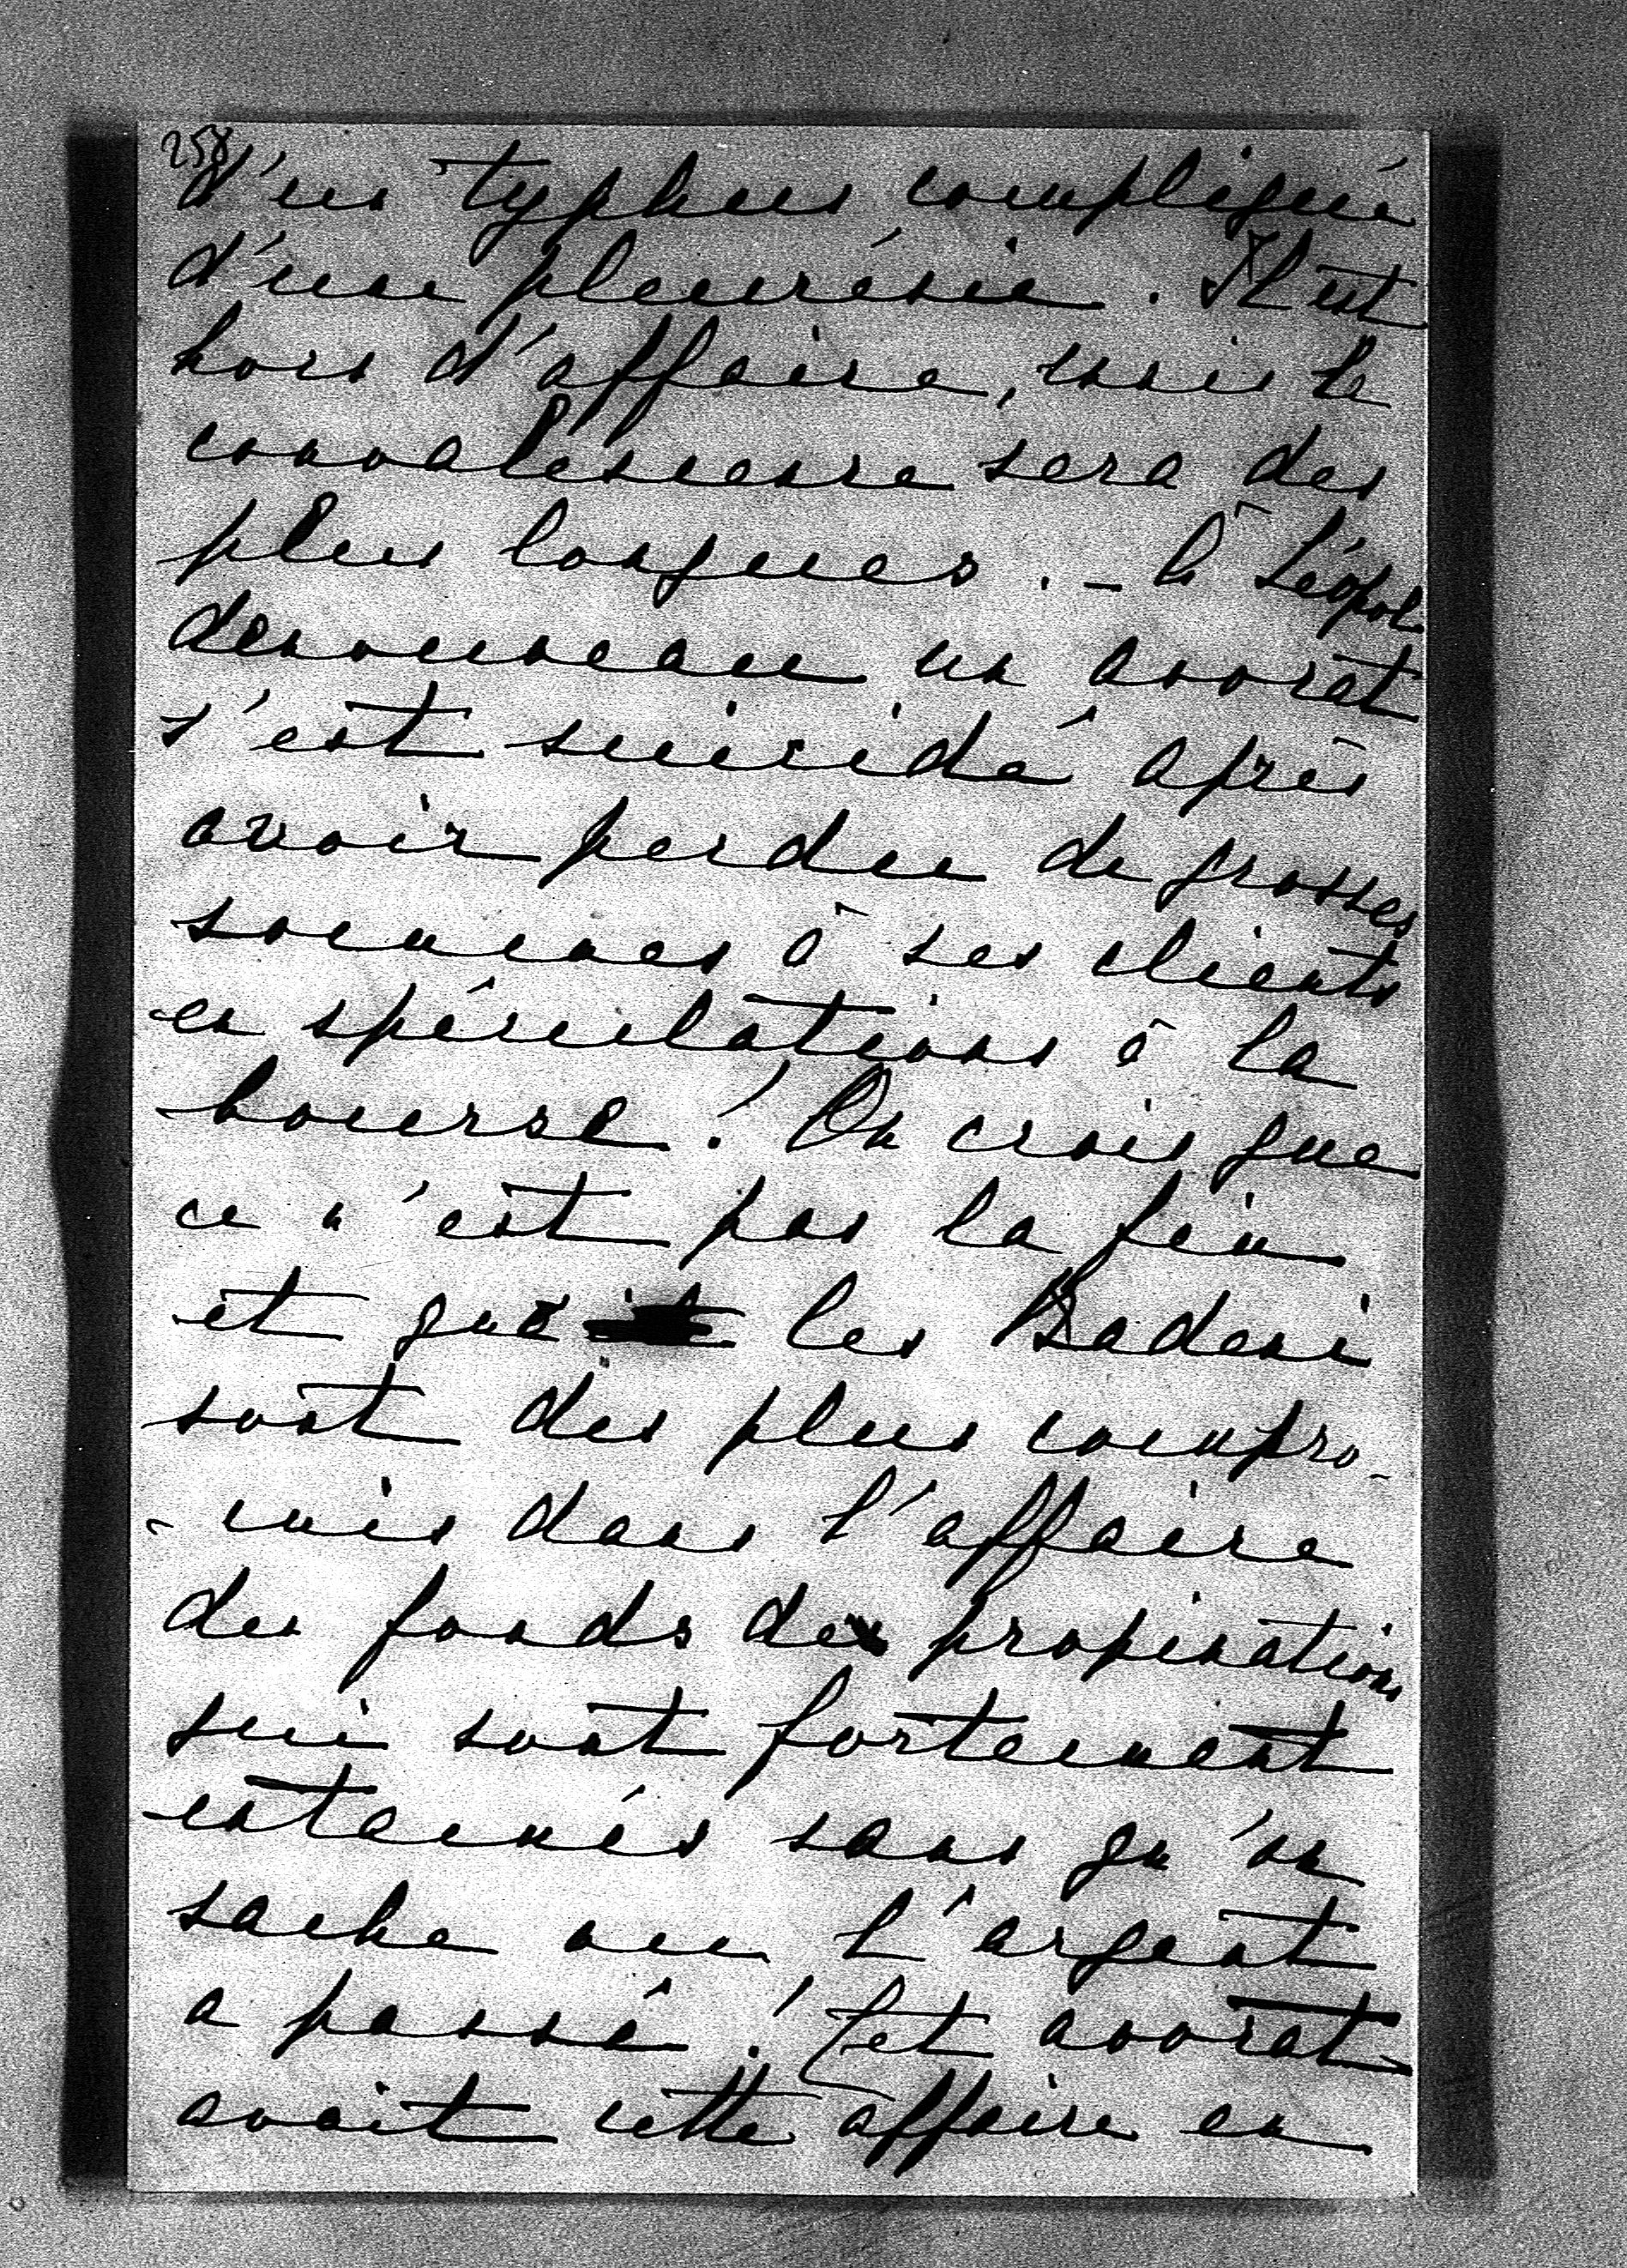 258
d'un typhus compliqué
d'une pleurésie. Il est
hors d'affaire, mais la
convalescence sera des
plus longues. - à Léopol
denouveau un avocat
s'est suicidé après
avoir perdu de grosses
sommes à ses clients
en spéculations à la
bourse! On crois que
ce n'est pas la fin
et que les Badeni
sont des plus compro-
-mis dans l'affaire
des fonds de propination
qui sont fortement
entamés sans qu'on
sache ou l'argent
a passé! Cet avocat
avait cette affaire en